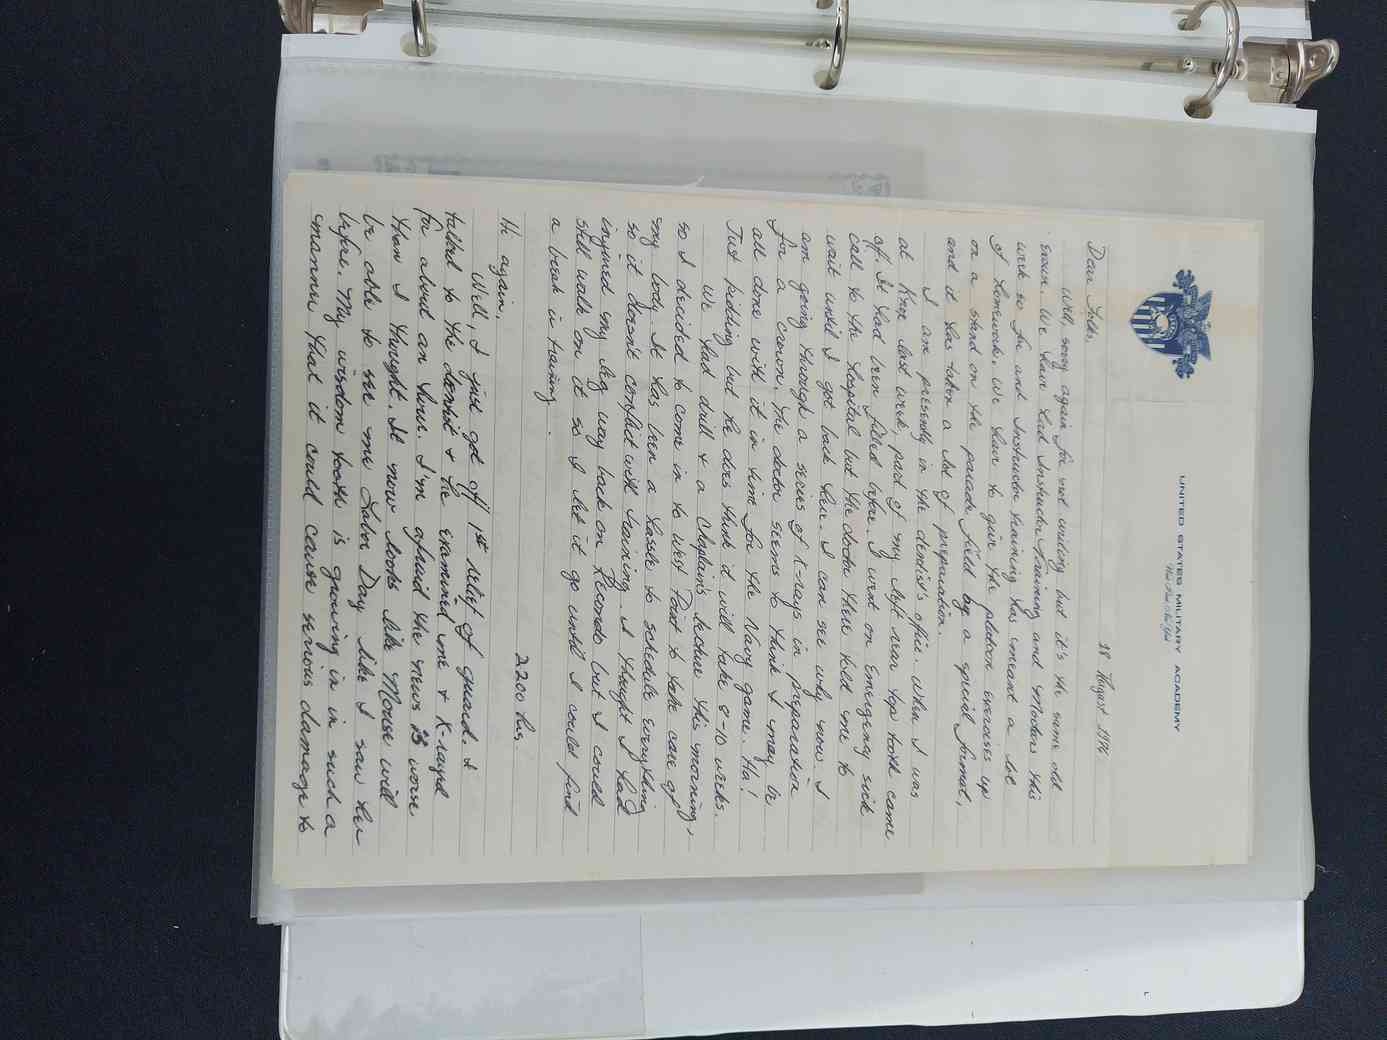 UNITED STATES MILITARY ACADEMY
West Point, New York
28 August 1976
Dear Folks,
Well, sorry again for not writing but it's the same old
song. We have had Instructor Training and Modern this
week so far and Instructor training has meant a lot
of homework. We have to give the platoon exercises up
on a stand on the parade field by a special format,
and it has taken a lot of preparation.
I am presently in the dentist's office. When I was
at Knox last week, part of my left rear top tooth came
off. It had been filled before. I went on Emergency sick
call to the hospital but the doctor there told me to
wait until I got back here. I can see why now. I
am going through a series of X-rays in preparation
for a crown. The doctor seems to think I may be
all done with it in time for the Navy game. Ha!
Just kidding but he does think it will take 8-10 weeks.
We had drill & a Chaplain's lecture this morning,
so I decided to come in to West Point to take care of
my body. It has been a hassle to schedule everything
so it doesn't conflict with training. I thought I had
injured my leg way back on Recondo but I could
still walk on it so I let it go until I could find
a break in training.
2200 hrs.
Hi again,
Well, I just got off 1st relief of guard. I
talked to the dentist & he examined me & X-rayed
for about an hour. I'm afraid the news is worse
than I thought. It now looks like Mouse will
be able to see me Labor Day like I saw her
before. My wisdom tooth is growing in in such a
manner that it could cause serious damage to